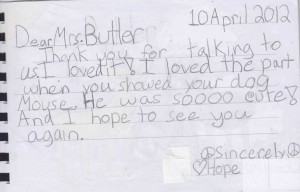 10 April 2012
Dear Mrs. Butler
Thank you for talking to
us I loved it! I loved the part
when you showed your dog
Mouse. He was soooo cute!
And I hope to see you
again.
☮Sincerely,☮
♡Hope